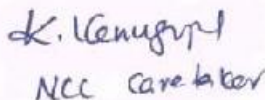 K. Venugopal
NCC Caretaker